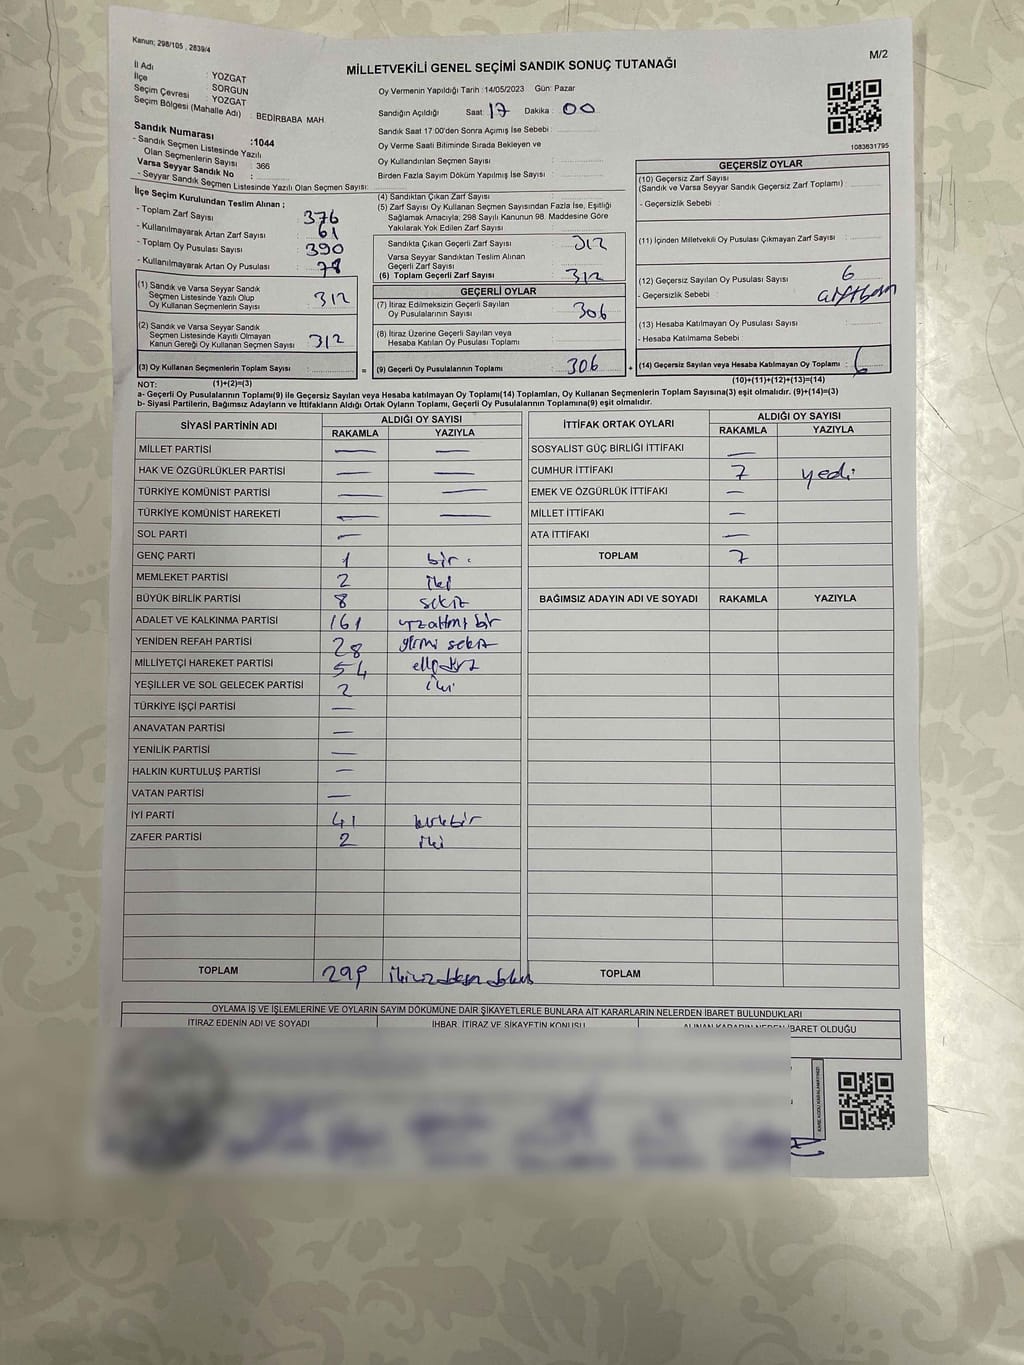 Kanun; 298/105 , 2839/4
M/2
MİLLETVEKİLİ GENEL SEÇİMİ SANDIK SONUÇ TUTANAĞI
İl Adı : YOZGAT
İlçe : SORGUN
Seçim Çevresi : YOZGAT
Seçim Bölgesi (Mahalle Adı) : BEDİRBABA MAH
Sandık Numarası :1044
- Sandık Seçmen Listesinde Yazılı
Olan Seçmenlerin Sayısı : 366
Varsa Seyyar Sandık No :
- Seyyar Sandık Seçmen Listesinde Yazılı Olan Seçmen Sayısı:
Oy Vermenin Yapıldığı Tarih :14/05/2023 Gün: Pazar
Sandığın Açıldığı Saat: 17 Dakika : 00
Sandık Saat 17:00'den Sonra Açımış İse Sebebi :
Oy Verme Saati Bitiminde Sırada Bekleyen ve
Oy Kullandırılan Seçmen Sayısı :
Birden Fazla Sayım Döküm Yapılmış İse Sayısı :
1083631795
İlçe Seçim Kurulundan Teslim Alınan ;
- Toplam Zarf Sayısı : 376
- Kullanılmayarak Artan Zarf Sayısı : 61
- Toplam Oy Pusulası Sayısı : 390
- Kullanılmayarak Artan Oy Pusulası : 78
(1) Sandık ve Varsa Seyyar Sandık
Seçmen Listesinde Yazılı Olup
Oy Kullanan Seçmenlerin Sayısı : 312
(2) Sandık ve Varsa Seyyar Sandık
Seçmen Listesinde Kayıtlı Olmayan
Kanun Gereği Oy Kullanan Seçmen Sayısı : 312
(3) Oy Kullanan Seçmenlerin Toplam Sayısı :
(4) Sandıktan Çıkan Zarf Sayısı :
(5) Zarf Sayısı Oy Kullanan Seçmen Sayısından Fazla İse, Eşitliği
Sağlamak Amacıyla; 298 Sayılı Kanunun 98. Maddesine Göre
Yakılarak Yok Edilen Zarf Sayısı :
Sandıkta Çıkan Geçerli Zarf Sayısı : 312
Varsa Seyyar Sandıktan Teslim Alınan
Geçerli Zarf Sayısı :
(6) Toplam Geçerli Zarf Sayısı : 312
GEÇERLİ OYLAR
(7) İtiraz Edilmeksizin Geçerli Sayılan
Oy Pusulalarının Sayısı : 306
(8) İtiraz Üzerine Geçerli Sayılan veya
Hesaba Katılan Oy Pusulası Toplamı :
= (9) Geçerli Oy Pusulalarının Toplamı : 306
GEÇERSİZ OYLAR
(10) Geçersiz Zarf Sayısı
(Sandık ve Varsa Seyyar Sandık Geçersiz Zarf Toplamı) :
- Geçersizlik Sebebi :
(11) İçinden Milletvekili Oy Pusulası Çıkmayan Zarf Sayısı :
(12) Geçersiz Sayılan Oy Pusulası Sayısı : 6
- Geçersizlik Sebebi :
(13) Hesaba Katılmayan Oy Pusulası Sayısı :
- Hesaba Katılmama Sebebi :
+ (14) Geçersiz Sayılan veya Hesaba Katılmayan Oy Toplamı : 6
NOT: (1)+(2)=(3) (10)+(11)+(12)+(13)=(14)
a- Geçerli Oy Pusulalarının Toplamı(9) ile Geçersiz Sayılan veya Hesaba katılmayan Oy Toplamı(14) Toplamları, Oy Kullanan Seçmenlerin Toplam Sayısına(3) eşit olmalıdır. (9)+(14)=(3)
b- Siyasi Partilerin, Bağımsız Adayların ve İttifakların Aldığı Ortak Oyların Toplamı, Geçerli Oy Pusulalarının Toplamına(9) eşit olmalıdır.
SİYASİ PARTİNİN ADI ALDIĞI OY SAYISI
RAKAMLA YAZIYLA
MİLLET PARTİSİ — —
HAK VE ÖZGÜRLÜKLER PARTİSİ — —
TÜRKİYE KOMÜNİST PARTİSİ — —
TÜRKİYE KOMÜNİST HAREKETİ — —
SOL PARTİ —
GENÇ PARTİ 1 bir
MEMLEKET PARTİSİ 2 iki
BÜYÜK BİRLİK PARTİSİ 8 sekiz
ADALET VE KALKINMA PARTİSİ 161 yzatmş bir
YENİDEN REFAH PARTİSİ 28 yirmi sekiz
MİLLİYETÇİ HAREKET PARTİSİ 54
YEŞİLLER VE SOL GELECEK PARTİSİ 2 iki
TÜRKİYE İŞÇİ PARTİSİ —
ANAVATAN PARTİSİ —
YENİLİK PARTİSİ —
HALKIN KURTULUŞ PARTİSİ —
VATAN PARTİSİ —
İYİ PARTİ 41 kırkbir
ZAFER PARTİSİ 2 iki
TOPLAM 299
İTTİFAK ORTAK OYLARI ALDIĞI OY SAYISI
RAKAMLA YAZIYLA
SOSYALİST GÜÇ BİRLİĞİ İTTİFAKI —
CUMHUR İTTİFAKI 7 yedi
EMEK VE ÖZGÜRLÜK İTTİFAKI —
MİLLET İTTİFAKI —
ATA İTTİFAKI —
TOPLAM 7
BAĞIMSIZ ADAYIN ADI VE SOYADI RAKAMLA YAZIYLA
TOPLAM
OYLAMA İŞ VE İŞLEMLERİNE VE OYLARIN SAYIM DÖKÜMÜNE DAİR ŞİKAYETLERLE BUNLARA AİT KARARLARIN NELERDEN İBARET BULUNDUKLARI
İTİRAZ EDENİN ADI VE SOYADI İHBAR, İTİRAZ VE ŞİKAYETİN KONUSU ALINAN KARARIN NEDEN İBARET OLDUĞU